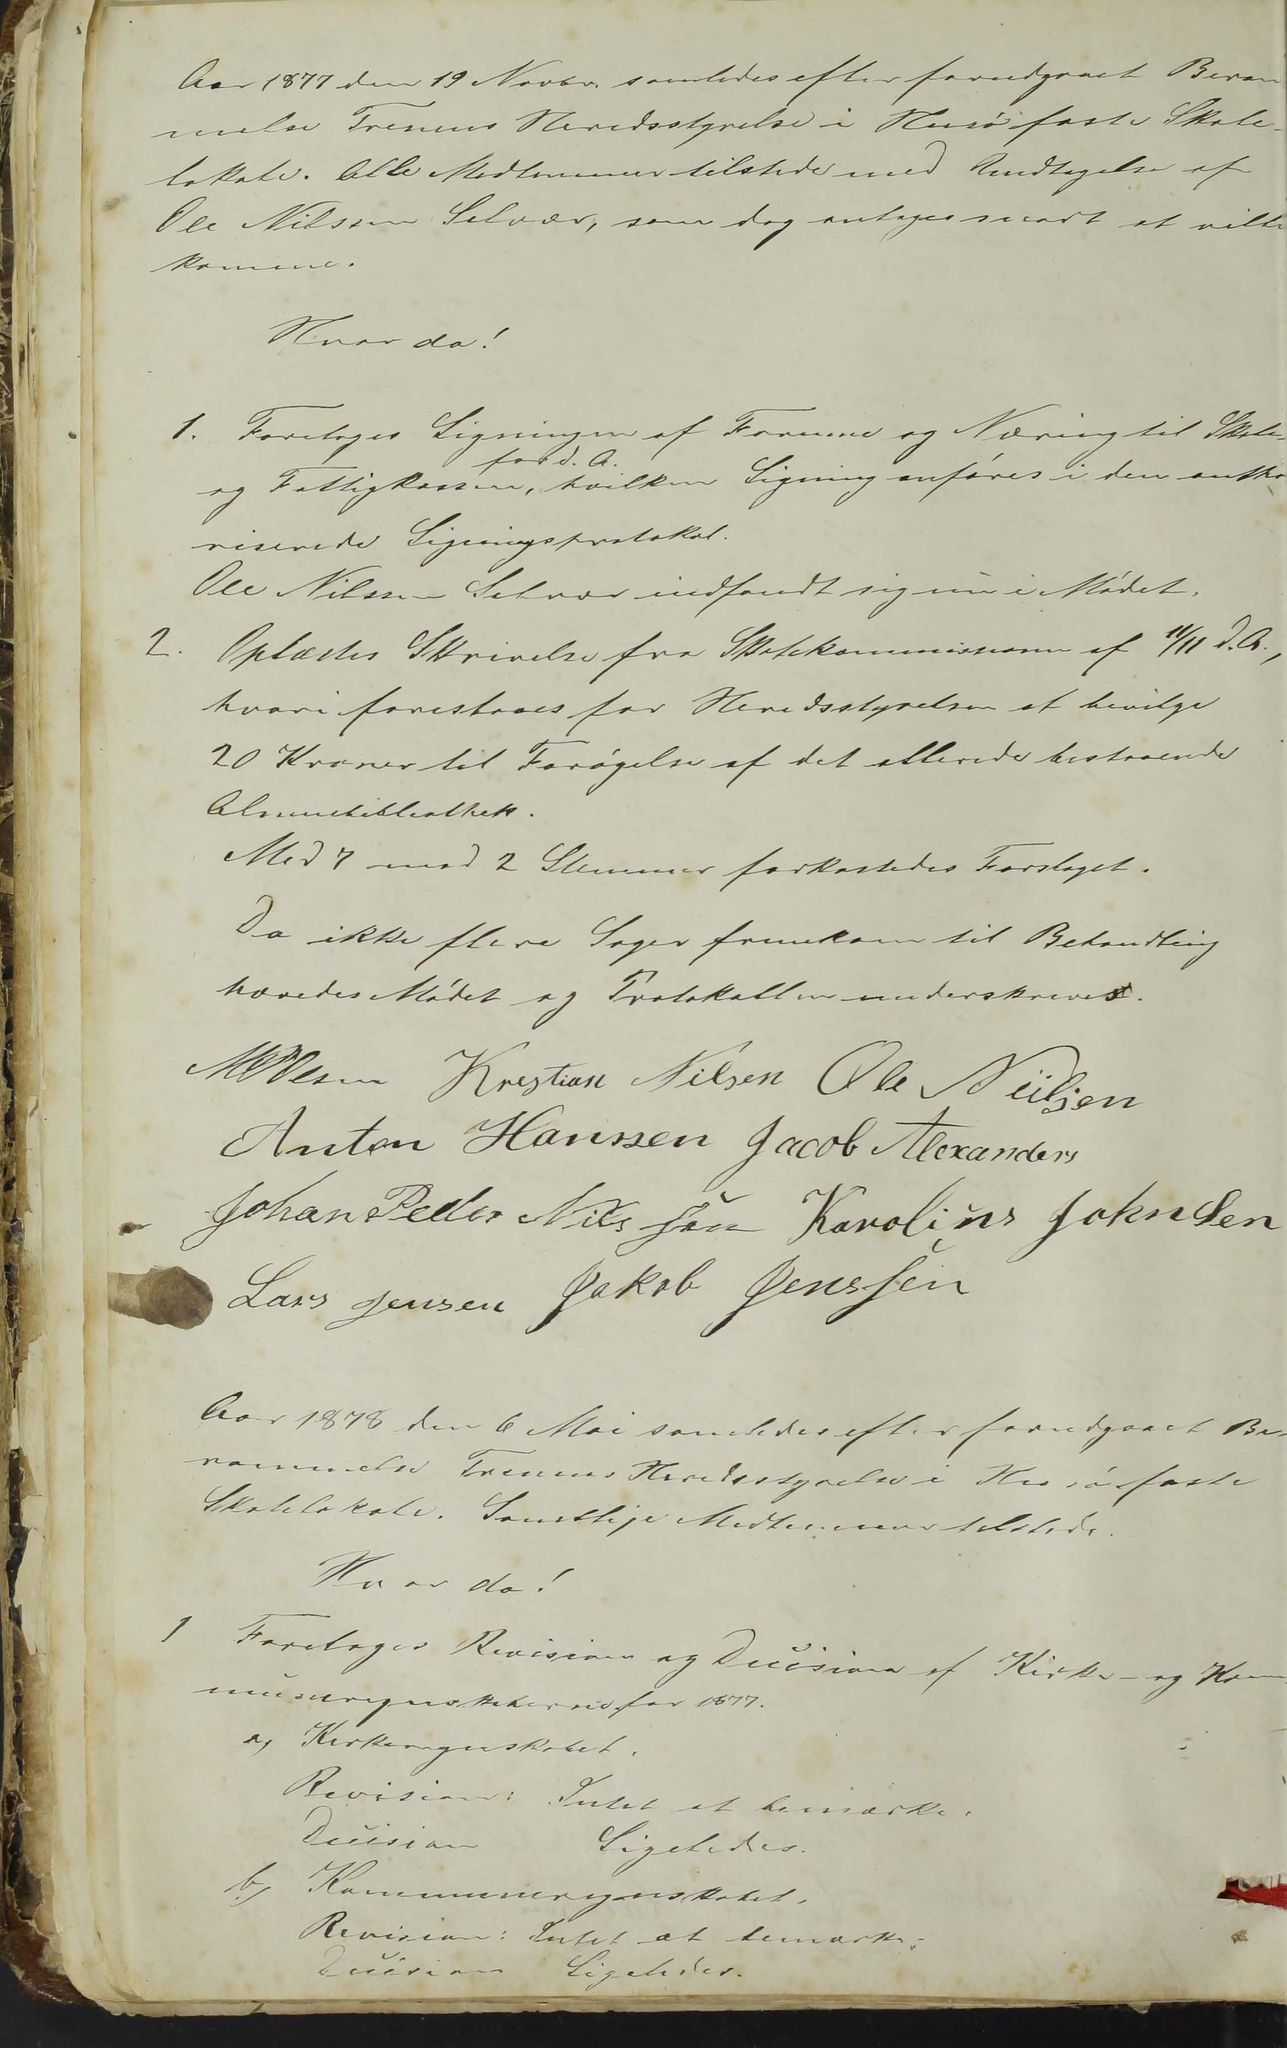 Aar 1877 den 19 Novbr. samledes efter forudgaaet Beram
melse Trænens Heredsstyrelse i Husø faste Skole-
lokale. Alle Medlemmer tilstede med Undtagelse af
Ole Nilssen Selvær, som dog antages snart at ville
komme.
Hvor da!
1. Foretoges Ligningen af Formue og Næring til Skole-
for d. A.
og Fattigkassen, hvilken Ligning anføres i den autho
riserede Ligningsprotokol.
Ole Nilssen Selvær indfandt sig nu i Mødet.
2. Oplæstes Skrivelse fra Skolekommissionen af 14/11 d. A.,
hvori foreslaaes for Heredsstyrelsen at bevilge
20 Kroner til Forøgelse af det allerede bestaaende
Almuebibliothek.
Med 7 mod 2 Stemmer forkastedes Forslaget.
Da ikke flere Sager fremkom til Behandling
hævedes Mødet og Protokollen underskreves.
Kristian Nilsen Ole Nilsen
Anton Hanssen Jacob Alexanders
Johan Peder Nilssen Karolius Johnsen
Lars Jensen Jakob Jenssen
Aar 1878 den 6 Mai samledes efter forudgaaet Be-
rammelse Trænens Heredsstyrelse i Husø faste
Skolelokale. Samtlige Medlemmer tilstede.
Hvor da!
1 Foretoges Revision og Decision af Kirke- og Kom
muneregnskaberne for 1877.
a, Kirkeregnskabet.
Revision: Intet at bemærke.
Decision Ligeledes.
b, Kommuneregnskabet.
Revision: Intet at bemærke.
Decision Ligeledes.